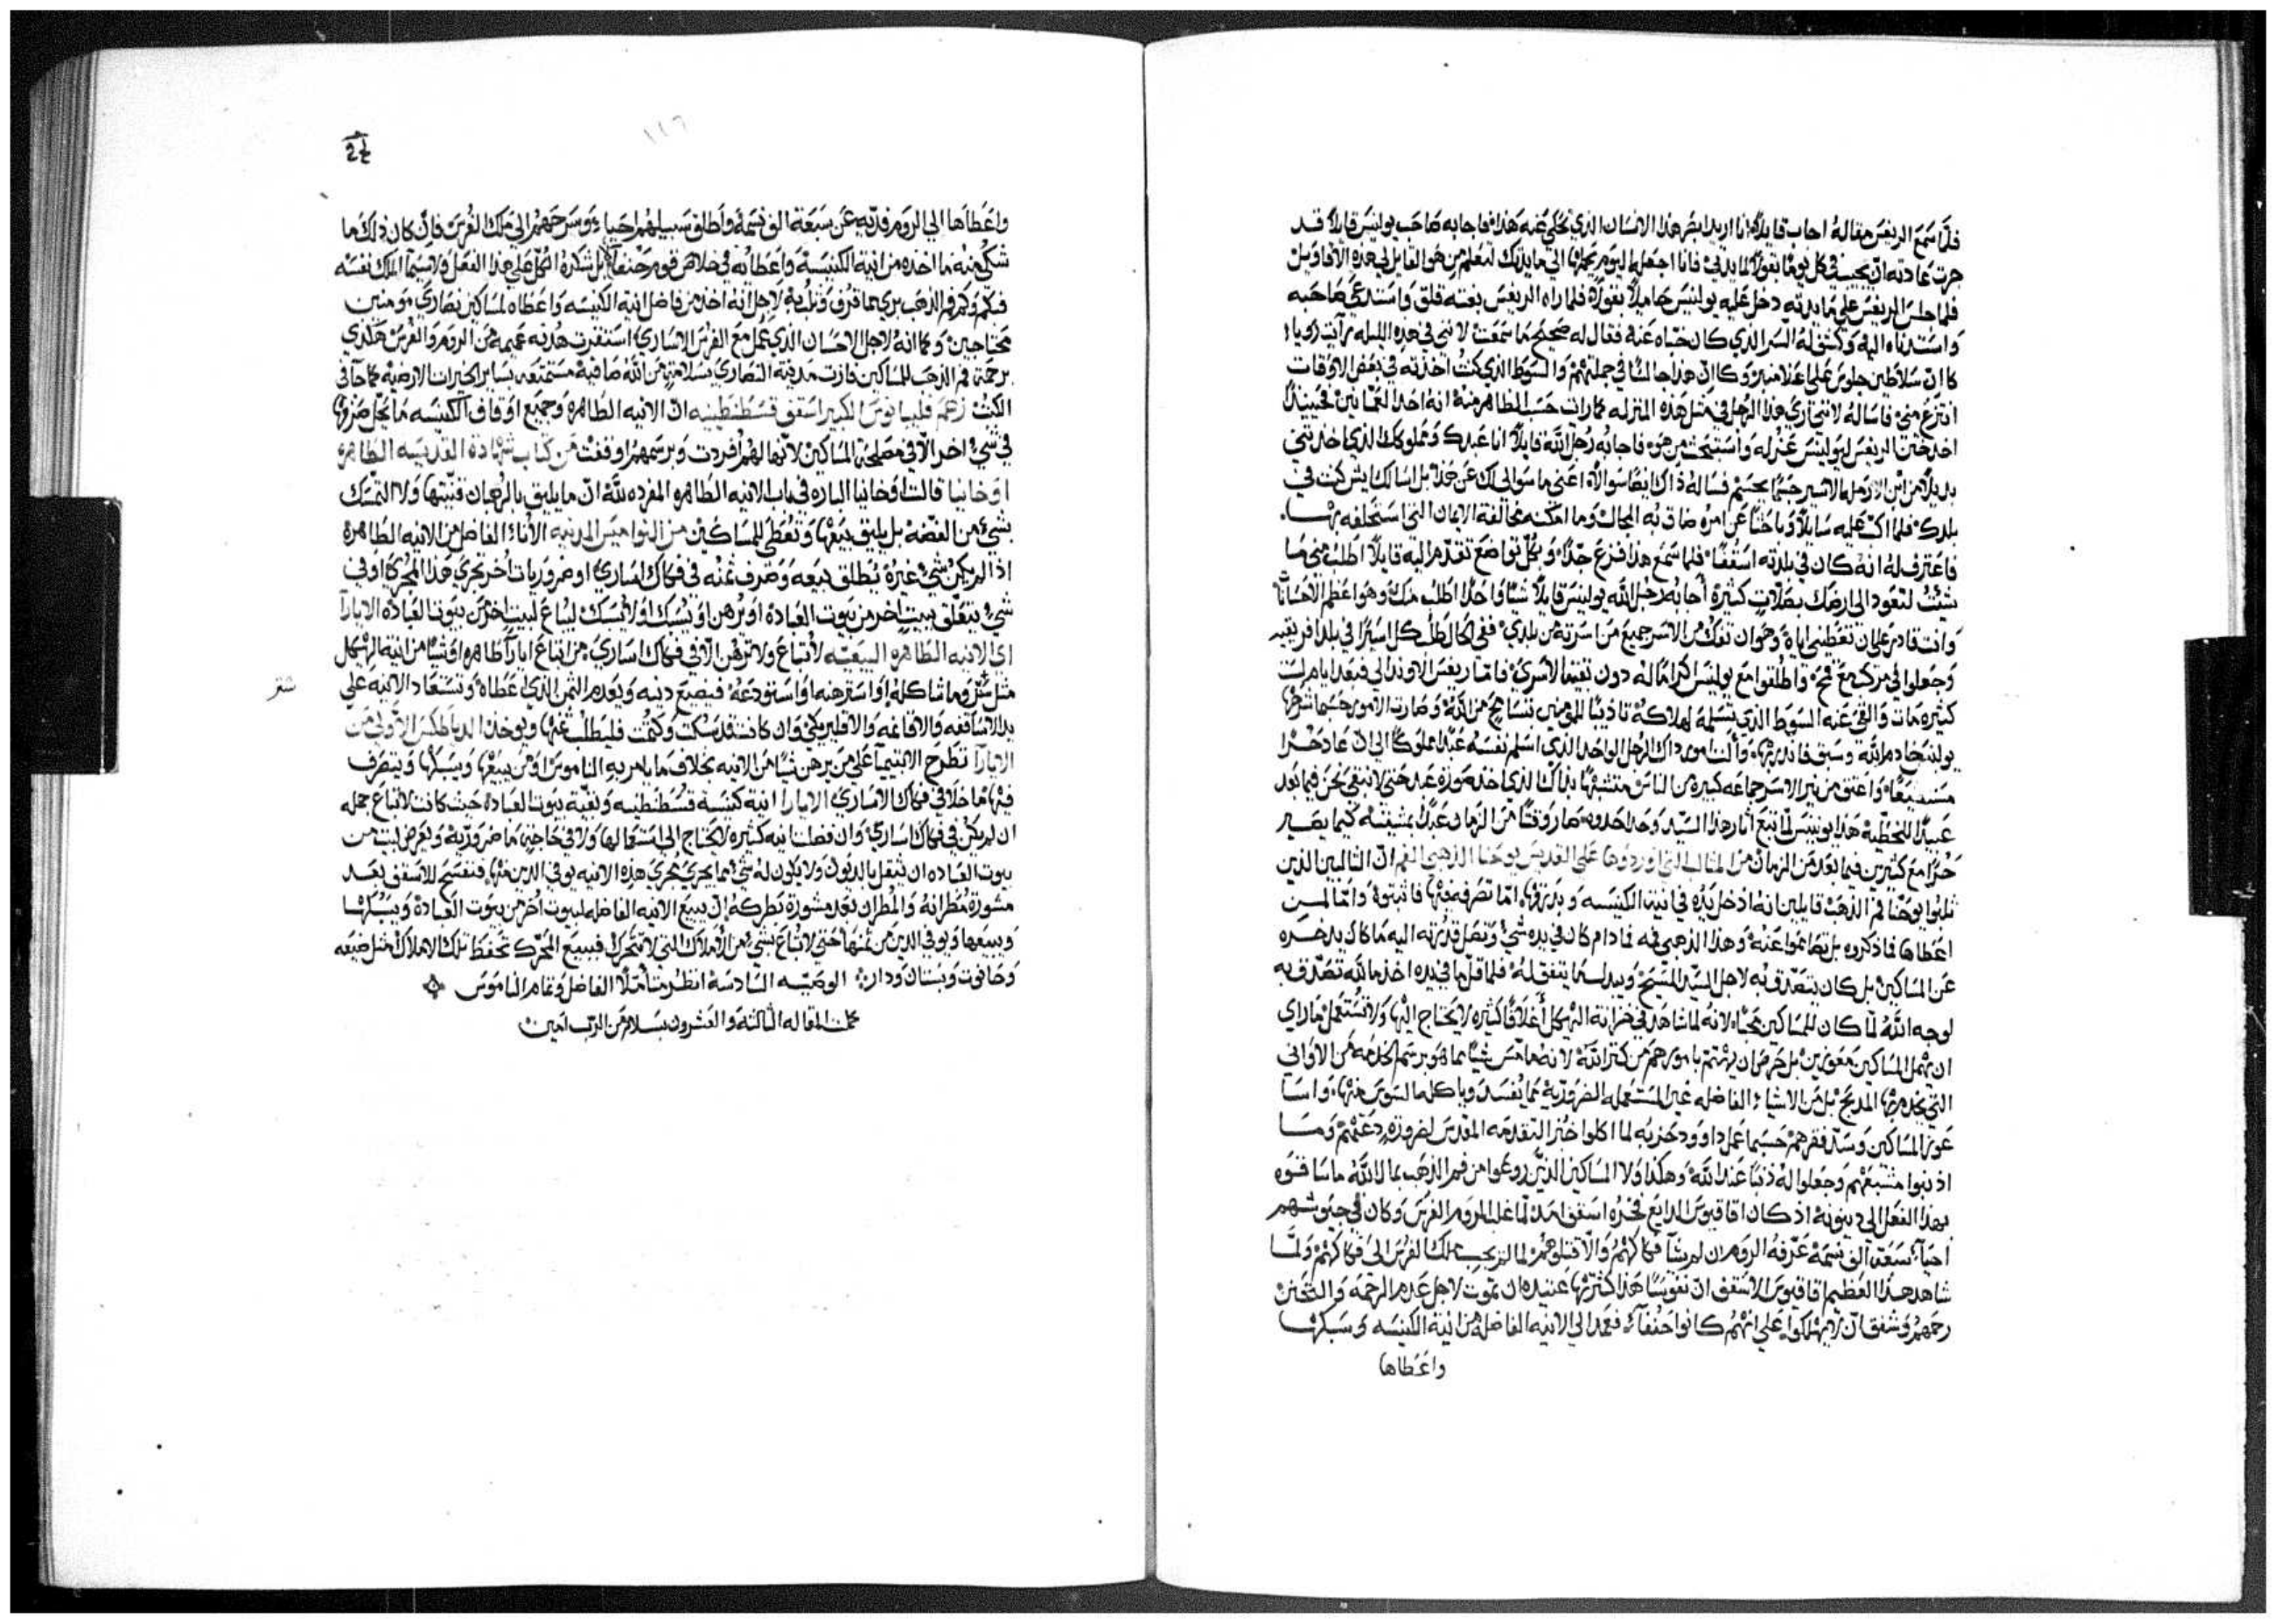 فلما سمع الريغس مقاله اجاب قايلاً انا اريد ابصر هذا الانسان الذي تحكي عنه هذا فاجابه صاحب بولينس قايلاً قد
جرت عادته ان يجيب في كل يوم بقولاً لمايدتي فانا اجعله اليوم يحملها الي مايدتك لتعلم من هو القايل لي هذه الاقاويل
فلما جلس الريغس علي مايدته دخل عليه بولينس حاملاً بقوله فلما راه الريغس بغته قلق واستدعي صاحبه
واستدناه اليه وكشف له السر الذي كان خباه عنه فقال له صحيح ما سمعت لانني في هذه الليله رايت رويا
كان سلاطين جلوس علي منابر وكان هذا جالسا في جملتهم والسوط الذي كنت اخذته في بعض الاوقات
انتزع مني فاساله لانني اري هذا الرجل في مثل هذه المنزله كما رايت حسب الظاهر منه انه احد العمالين فحينيذ
اخذ ختن الريغس لبولينس عزله واستبحث من هو فاجابه رجل الله قايلاً انا عبدك ومملوكك الذي اخذتني
بديلاً من ابن الارمله الاسير فساله ذاك ايضا سوالاً اعني ما سوالي لك عن هذا بل اسالك ايش كنت في
بلدك فلما اكثر عليه سايلاً وباحثاً عن امره ضاق به المجال وما امكنه مخالفة الايمان التي استحلفه بها
فاعترف له انه كان في بلدته اسقفا فلما سمع هذا فزع جداً وبكل تواضع تقدم اليه قايلاً اطلب مني ما
شئت لتعود الي ارضك بصلات كثيرة اجابه رجل الله بولينس قايلاً شيا واحداً اطلب منك وهو اعظم الاحسان
وانت قادر علي ان تعطيني اياه وهو ان تفك من الاسر جميع من اسرته من بلدي ففي الحال طلب كل اسير في بلد افريقيه
وجعلوا في مركب مع قمح واطلقوا مع بولينس اكراماً له دون بقية الاسري فاما ريغس الاوندالي فبعد ايام ليست
كثيره مات والقي عنه السوط الذي تسلمه لهلاكه تاديبا للمومنين بتسامح من الله وصارت الامور حسبما شرحها
بولينس خادم الله وسبق فانذر بها واتت مومن ذاك الرجل الواحد الذي اسلم نفسه عبداً مملوكاً الي ان عاد حراً
واعتق من نير الاسر جماعه كبيره من الناس متشبها بذاك الذي اخذ صورة عبد حتي لا نبقي نحن فيما بعد
عبيداً للخطيه هذا بولينس لما اتبع اثار هذا السيد وحده صار وقتاً من الزمان عبداً بمشيته كيما يصير
حراً مع كثيرين فيما بعد من الزمان من المثالب التي اوردوها علي القديس يوحنا الذهبي الفم ان الثالبين الذين
ثلبوا يوحنا فم الذهب قايلين انه ادخل يده في انية الكنيسه وبذرها اما تصرفه فيها فاثبتوه واما لمن
اعطاها فما ذكروه بل تصامموا عنه وهذا الذهبي فمه فما دام كان في يده شي وتصل قدرته اليه ما كان يدخره
عن المساكين بل كان يتصدق به لاجل السيد المسيح ويبذل ما يتفق له فلما قل ما في يده اخذ ما لله تصدق به
لوجه الله لما كان للمساكين محبا لانه لما شاهد في خزانة الهيكل كثيره لا يحتاج اليها ولا تستعمل ما راي
ان يهمل المساكين معوزين بل حرص ان يهتم بامورهم من كنز الله لانه ما مس شيا مما هو برسم الخدمه من الاواني
التي يخدم بها المذبح بل من الاشياء الفاضله غير المستعمله الضرورية مما يفسد وياكلها السوس منها واسا
عوز المساكين وسد فقرهم حسبما عمل داوود وحزبه لما اكلوا خبز التقدمه المقدس لضروره دعتهم وما
اذنبوا وجعلوا له ذنبا عند الله وهكذا ولا المساكين الذين روعوا من فم الذهب بما لله ما ساقوه
بهذا الفعل الي دينونه اذ كان اقاقيوس الذايع فخره اسقف امد لما غلب الروم الفرس وكان في حبوسهم
احياء سبعة الف نسمه عرفه الروم ان لم يشا فكاكهم والا قتلوهم لما لم يجب ملك الفرس الي فكاكهم ولما
شاهد هذا العظيم اقاقيوس الاسقف ان نفوسا هذا كثرتها عتيده ان تموت لاجل عدم الرحمه والتحنن
رحمهم وشفق ان لا يهلكوا علي انهم كانوا حنفاء فعمد الي الانيه الفاضله من انية الكنيسه وسبكها
واعطاها
١١٦
واعطاها الي الروم فديه عن سبعة الف نسمه واطلق سبيلهم احياء وسرحهم الي ملك الفرس فان كان ذلك ما
شكي منه ما اخذه من انية الكنيسة واعطائه في خلاص قوم حنفاء بل شكره الكل علي هذا الفعل ولا سيما الملك نفسه
فكم وكم فم الذهب بري مما قرف وثلب به لاجل انه اخذ من فاضل انية الكنيسه واعطاه لمساكين نصاري مومنين
محتاجين وكما انه لاجل الاحسان الذي عمل مع الفرس الاساري استقرت هدنه عميمه من الروم والفرس هكذي
برحمة فم الذهب للمساكين فازت مدينة النصاري بسلامة من الله صافية متمتعه بساير الخيرات الارضيه كما جا في
الكتب زعم فلبيانوس الكبير اسقف قسطنطينيه ان الانيه الطاهره وجميع اوقاف الكنيسه ما يحل صرفها
في شي اخر الا في مصلحة المساكين لانها لهم افردت وبرسمهم اوقفت من كتاب شهادة القديسه الطاهره
اوخانيا قالت اوخانيا الباره في باب الانيه الطاهره المفرده لله ان ما يليق بالرهبان قنيتها ولا التمسك
بشي من الفضه بل يليق بيعها وتعطي للمساكين من النواميس المدنيه الاناء الفاضل من الانيه الطاهرة
اذا لم يكن شي غيره يطلق بيعه وصرف ثمنه في فكاك اساري او ضروريات اخر تجري هذا المجري او في
شي يتعلق ببيت اخر من بيوت العباده او يرهن او يسبك او لا يسبك ليباع لبيت اخر من بيوت العباده الابارا
اي الانيه الطاهره البيعيه لا تباع ولا ترهن الا في فكاك اساري من ابتاع ابارا طاهره او شيا من انية الهيكل
مثل ستر وما شاكله او استرهنه او استودعه فيضيع دينه ويعدم الثمن الذي اعطاه وتستعاد الانيه علي
ستر
يد الاساقفه والاقانمه والاقليريكي وان كانت قد سبكت وكتمت فليطلب ثمنها ويوخذ الدياطكس الاولي من
الابارا تطرح الابتيميا علي من يرهن شيا من الانيه بخلاف ما يامر به الناموس او من يبيعها ويسبكها ويتصرف
فيها ما خلا في فكاك الاساري الابارا انية كنيسة قسطنطينيه وبقية بيوت العبادة حيث كانت لا تباع جمله
ان لم يكن في فكاك اساري وان فضلت انيه كثيره لا يحتاج الي استعمالها ولا في حاجة ما ضروريه ويعرض لبيت من
بيوت العباده ان يثقل بالديون ولا يكون له شي مما يجري مجري هذه الانيه يوفي الدين منها فنفسح للاسقف بعد
مشورة مطرانه والمطران بعد مشورة بطركه ان يبيع الانيه الفاضله لبيوت اخر من بيوت العبادة ويسبكها
ويبيعها ويوفي الدين من ثمنها حتي لا تباع بشي من الاملاك التي لا تتحرك فببيع المحرك تحفظ تلك الاملاك مثل ضيعه
وحانوت وبستان ودار الوصيه السادسة انظر متاملاً الفاضل وتمام الناموس
كملت المقاله الثالثه والعشرون بسلام من الرب امين